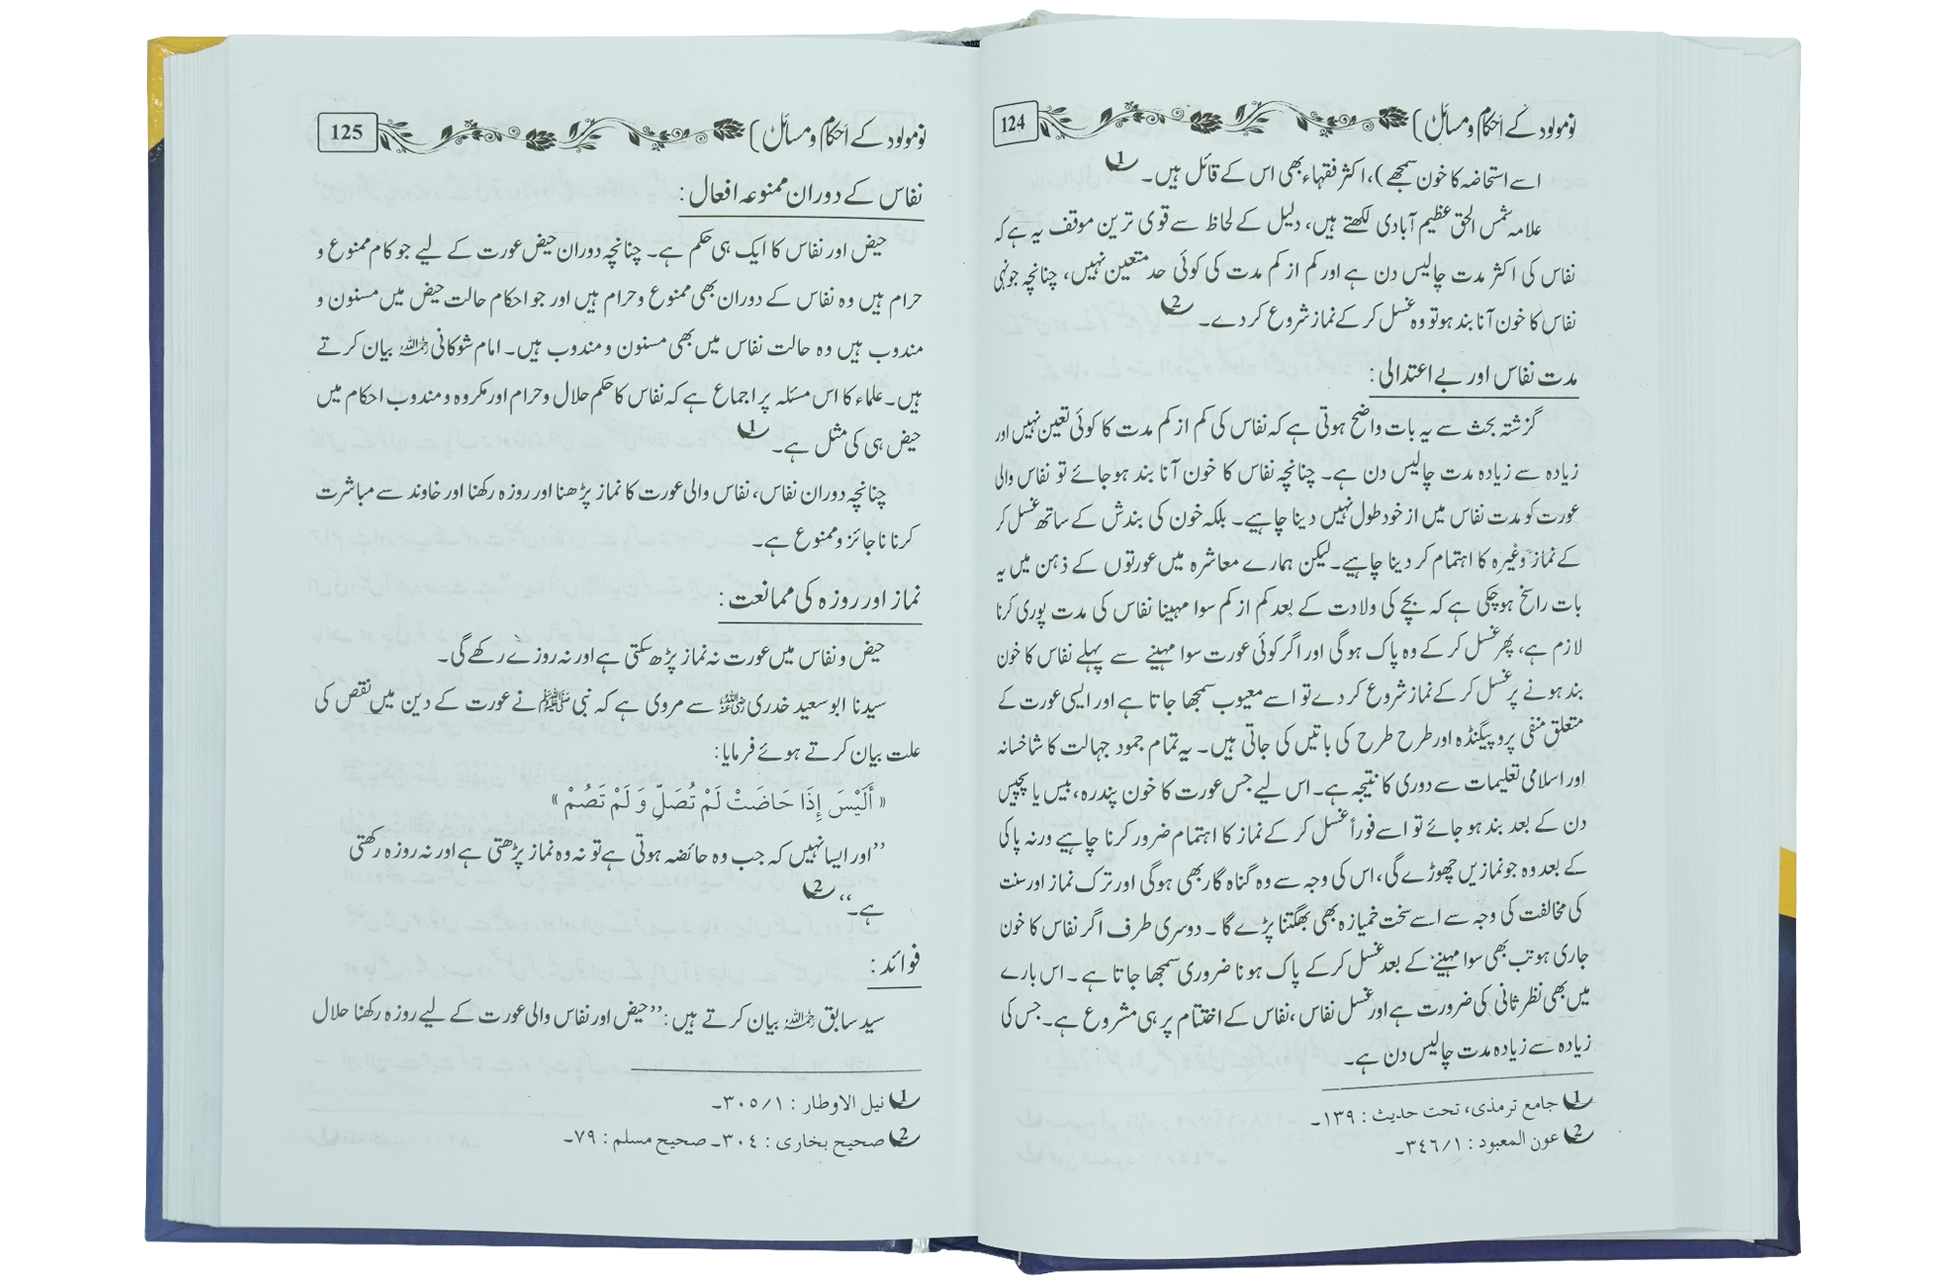 نومولود کے احکام و مسائل
124
اسے استحاضہ کا خون سمجھے)، اکثر فقہاء بھی اس کے قائل ہیں۔ 1
علامہ شمس الحق عظیم آبادی لکھتے ہیں، دلیل کے لحاظ سے قوی ترین موقف یہ ہے کہ
نفاس کی اکثر مدت چالیس دن ہے اور کم از کم مدت کی کوئی حد متعین نہیں، چنانچہ جونہی
نفاس کا خون آنا بند ہو تو وہ غسل کر کے نماز شروع کر دے۔ 2
مدت نفاس اور بے اعتدالی:
گزشتہ بحث سے یہ بات واضح ہوتی ہے کہ نفاس کی کم از کم مدت کا کوئی تعین نہیں اور
زیادہ سے زیادہ مدت چالیس دن ہے۔ چنانچہ نفاس کا خون آنا بند ہو جائے تو نفاس والی
عورت کو مدت نفاس میں از خود طول نہیں دینا چاہیے۔ بلکہ خون کی بندش کے ساتھ غسل کر
کے نماز وغیرہ کا اہتمام کر دینا چاہیے۔ لیکن ہمارے معاشرہ میں عورتوں کے ذہن میں یہ
بات راسخ ہو چکی ہے کہ بچے کی ولادت کے بعد کم از کم سوا مہینا نفاس کی مدت پوری کرنا
لازم ہے، پھر غسل کر کے وہ پاک ہوگی اور اگر کوئی عورت سوا مہینے سے پہلے نفاس کا خون
بند ہونے پر غسل کر کے نماز شروع کر دے تو اسے معیوب سمجھا جاتا ہے اور ایسی عورت کے
متعلق منفی پروپیگنڈہ اور طرح طرح کی باتیں کی جاتی ہیں۔ یہ تمام جمود جہالت کا شاخسانہ
اور اسلامی تعلیمات سے دوری کا نتیجہ ہے۔ اس لیے جس عورت کا خون پندرہ، بیس یا پچیس
دن کے بعد بند ہو جائے تو اسے فوراً غسل کر کے نماز کا اہتمام ضرور کرنا چاہیے ورنہ پاکی
کے بعد وہ جو نمازیں چھوڑے گی، اس کی وجہ سے وہ گناہ گار بھی ہوگی اور ترک نماز اور سنت
کی مخالفت کی وجہ سے اسے سخت خمیازہ بھی بھگتنا پڑے گا۔ دوسری طرف اگر نفاس کا خون
جاری ہو تب بھی سوا مہینے کے بعد غسل کر کے پاک ہونا ضروری سمجھا جاتا ہے۔ اس بارے
میں بھی نظر ثانی کی ضرورت ہے اور غسل نفاس، نفاس کے اختتام پر ہی مشروع ہے۔ جس کی
زیادہ سے زیادہ مدت چالیس دن ہے۔
1 جامع ترمذی، تحت حدیث : ۱۳۹۔
2 عون المعبود : ۳٤٦/۱۔
نومولود کے احکام و مسائل
125
نفاس کے دوران ممنوعہ افعال:
حیض اور نفاس کا ایک ہی حکم ہے۔ چنانچہ دوران حیض عورت کے لیے جو کام ممنوع و
حرام ہیں وہ نفاس کے دوران بھی ممنوع و حرام ہیں اور جو احکام حالت حیض میں مسنون و
مندوب ہیں وہ حالت نفاس میں بھی مسنون و مندوب ہیں۔ امام شوکانی رحمہ اللہ بیان کرتے
ہیں۔ علماء کا اس مسئلہ پر اجماع ہے کہ نفاس کا حکم حلال و حرام اور مکروہ و مندوب احکام میں
حیض ہی کی مثل ہے۔ 1
چنانچہ دوران نفاس، نفاس والی عورت کا نماز پڑھنا اور روزہ رکھنا اور خاوند سے مباشرت
کرنا ناجائز و ممنوع ہے۔
نماز اور روزہ کی ممانعت:
حیض و نفاس میں عورت نہ نماز پڑھ سکتی ہے اور نہ روزے رکھے گی۔
سیدنا ابو سعید خدری رضی اللہ عنہ سے مروی ہے کہ نبی ﷺ نے عورت کے دین میں نقص کی
علت بیان کرتے ہوئے فرمایا:
« أَلَيْسَ إِذَا حَاضَتْ لَمْ تُصَلِّ وَ لَمْ تَصُمْ »
’’اور ایسا نہیں کہ جب وہ حائضہ ہوتی ہے تو نہ وہ نماز پڑھتی ہے اور نہ روزہ رکھتی
ہے۔‘‘ 2
فوائد:
سید سابق رحمہ اللہ بیان کرتے ہیں: ’’حیض اور نفاس والی عورت کے لیے روزہ رکھنا حلال
1 نیل الاوطار : ۳۰٥/۱۔
2 صحیح بخاری : ۳۰٤۔ صحیح مسلم : ۷۹۔